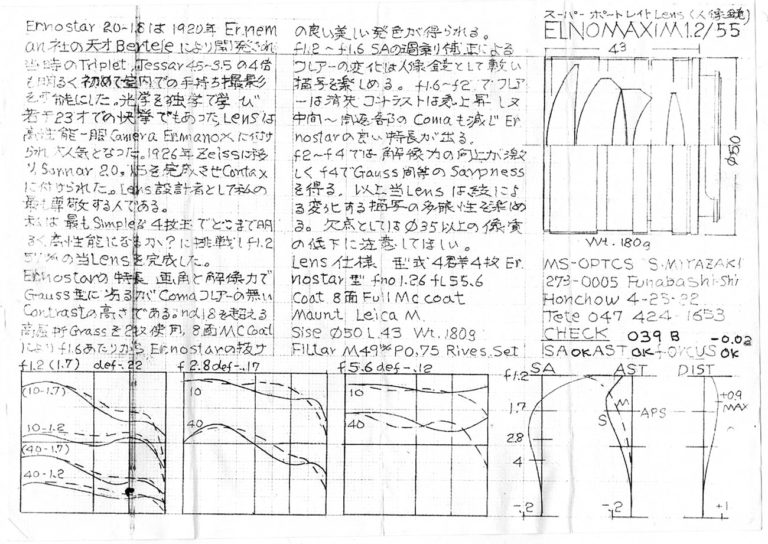 Ernostar 20-1.8は1920年Ernem
an社の天才Berteleにより開発され
当時のTriplet, Tessar 4.5~3.5の4倍
も明るく初めて室内での手持ち撮影
を可能にした。光学を独学で学び
若干23才での快挙でもあったLensは
高性能一眼Camera Ermanoxに付け
られ人気となった。1926年Zeissに移
りSonnar 2.0, 1.5を完成させContax
に付けられた。Lens設計者として私の
最も尊敬する人である。
私は最もSimpleな4枚玉でどこまで明
るく高性能になるか?に挑戦しf1.2
の当Lensを完成した。
Ernostarの特長 画角と解像力で
Gauss型に劣るがComaフレアーの無い
Contrastの高さである。nd1.8を超える
高屈折Grassを2枚使用, 8面MC Coat
によりf1.6あたりからErnostarの抜け
の良い美しい発色が得られる。
f1.2~f1.6 SAの過剰補正による
フレアーの変化は人像鏡として軟い
描写を楽しめる。f1.6~f2でフレア
ーは消失コントラストは急上昇し又
中間~周辺部のComaも減じEr
nostarの良い特長が出る。
f2~f4では解像力の向上が激
しくf4でGauss同等のSarpness
を得る。以上当Lensは絞によ
る変化する描写の多様性を楽め
る。欠点としてはØ35以上の像質
の低下に注意してほしい。
Lens仕様 型式4群4枚Er
nostar型 fno1.26 fL55.6
Coat 8面Full Mc coat
Maunt Leica M.
Sise Ø50 L.43 Wt.180g
Filtar M49 P0.75 Rives.Set
スーパーポートレイトLens(人像鏡)
ELNOMAXIM1.2/55
43
Ø50
Wt. 180g
MS-OPTCS S.MIYAZAKI
273-0005 Funabashi-Shi
Honchow 4-25-
Tele 047 424-1653
CHECK 039B -0.02
SA OK AST OK FORCUS OK
f1.2 (1.7) def-.22
(10-1.7)
10-1.2
(40-1.7)
40-1.2
f2.8 def-.17
10
40
f5.6 def-.12
10
40
f1.2
1.7
2.8
4
SA
-.2
AST
M
S
APS
-.2
DIST
+0.9
MAX
+1